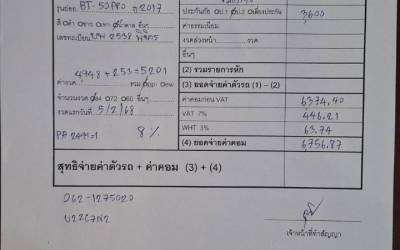 รุ่นย่อย BT-50 PRO ปี 2017
ประกันภัย 3600
ค่าธรรมเนียม
สี
อื่นๆ
เลขทะเบียน 2538 พิจิตร
งวดล่วงหน้า งวด
อื่นๆ
4948 + 253 = 5201
(2) รวมรายการหัก
ค่างวด รวม
(3) ยอดจ่ายค่าตัวรถ (1) – (2)
จำนวนงวด 72 60 อื่นๆ
ค่าคอมก่อน VAT 6374.40
งวดแรกวันที่ 5/2/68
VAT 7% 446.21
WHT 3% 63.74
PA 8%
(4) ยอดจ่ายค่าคอม 6756.87
สุทธิจ่ายค่าตัวรถ + ค่าคอม (3) + (4)
062-1275020
U2ZC7N2
เจ้าหน้าที่ทำสัญญา